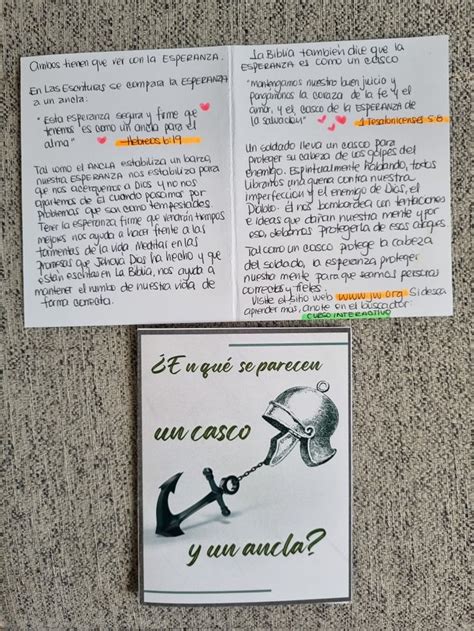 Ambos tienen que ver con la ESPERANZA.
En Las Escrituras se compara la ESPERANZA
a un ancla:
"Esta esperanza segura y firme que
tenemos es como un ancla para el
alma" -Hebreos 6:19
Tal como el ANCLA estabiliza un barco,
nuestra ESPERANZA nos estabiliza para
que nos acerquemos a Dios y no nos
apartemos de Él cuando pasamos por
problemas que son como tempestades.
Tener la esperanza firme que vendrán tiempos
mejores nos ayuda a hacer frente a las
tormentas de la vida. Meditar en las
promesas que Jehová Dios ha hecho y que
están escritas en La Biblia, nos ayuda a
mantener el rumbo de nuestra vida de
forma correcta.
La Biblia también dice que la
ESPERANZA es como un casco
"Mantengamos nuestro buen juicio y
pongámonos la coraza de la fe y el
amor, y el casco de la ESPERANZA de
la salvación" 1 Tesalonicenses 5:8
Un soldado lleva un casco para
proteger su cabeza de los golpes del
enemigo. Espiritualmente hablando, todos
libramos una guerra contra nuestra
imperfección y el enemigo de Dios, el
Diablo. Él nos bombardea con tentaciones
e ideas que dañan nuestra mente y por
eso, debemos protegerla de esos ataques
Tal como un casco protege la cabeza
del soldado, la esperanza protege
nuestra mente para que seamos personas
correctas y fieles.
Visite el sitio web www.jw.org Si desea
aprender más, anote en el buscador:
CURSO INTERACTIVO
¿En qué se parecen
un casco
y un ancla?